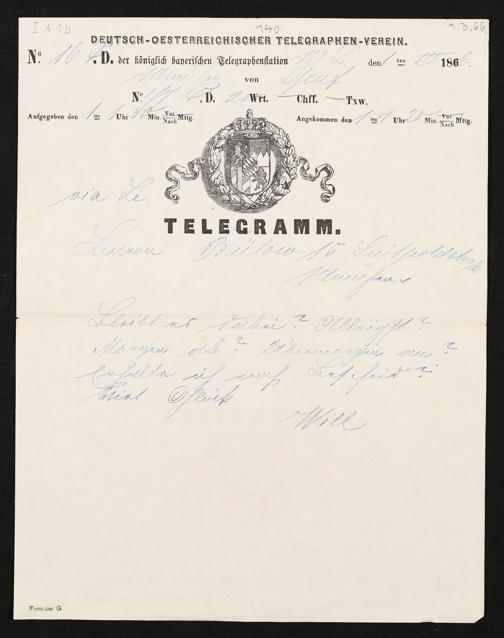 I A 1b 140 1.3.66.
DEUTSCH-OESTERREICHISCHER TELEGRAPHEN-VEREIN.
No. 16 . D. der königlich bayerischen Telegraphenstation M. L. den 1 ten III 1866.
München von Genf
No. . D. 20 Wrt. – Chff. – Txw.
Aufgegeben den 1 ten 1 Uhr 50 Min. Vor/Nach Mttg. Angekommen den 1 ten 4 Uhr 20 Min. Vor/Nach Mttg.
via Li.
TELEGRAMM.
Herrn Bülow 15 Luitpoldstrße
München
Bleibt es dabei? Allright?
Morgen ab? Übermorgen an?
Erhalte ich noch Bescheid?
Viel Glück
Will
Formular G.